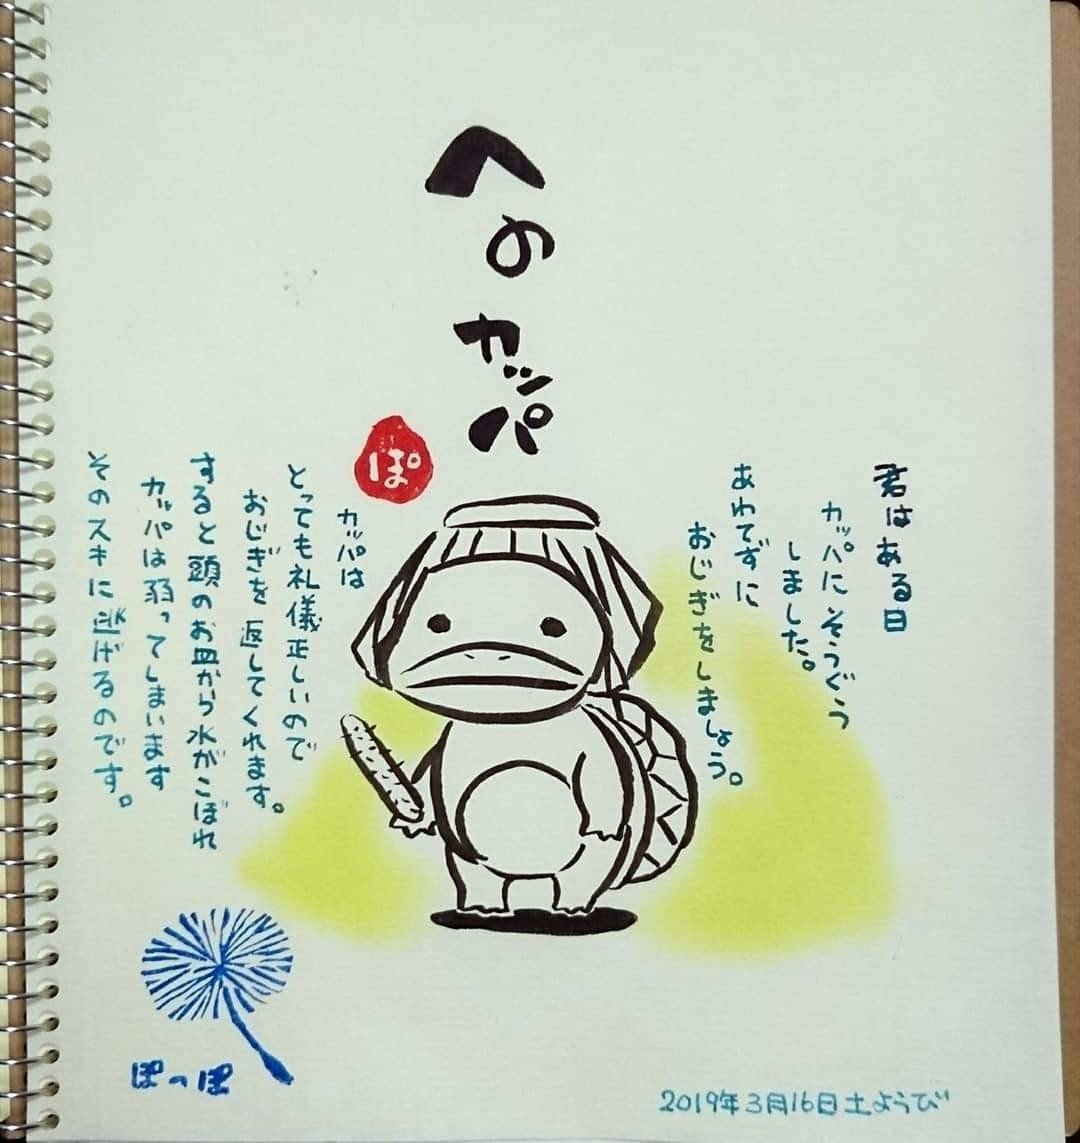 へのカッパ
ぽ
君はある日
カッパにそうぐう
しました。
あわてずに
おじぎをしましょう。
カッパは
とっても礼儀正しいので
おじぎを返してくれます。
すると頭のお皿から水がこぼれ
カッパは弱ってしまいます
そのスキに逃げるのです。
ぽっぽ
2019年3月16日土ようび